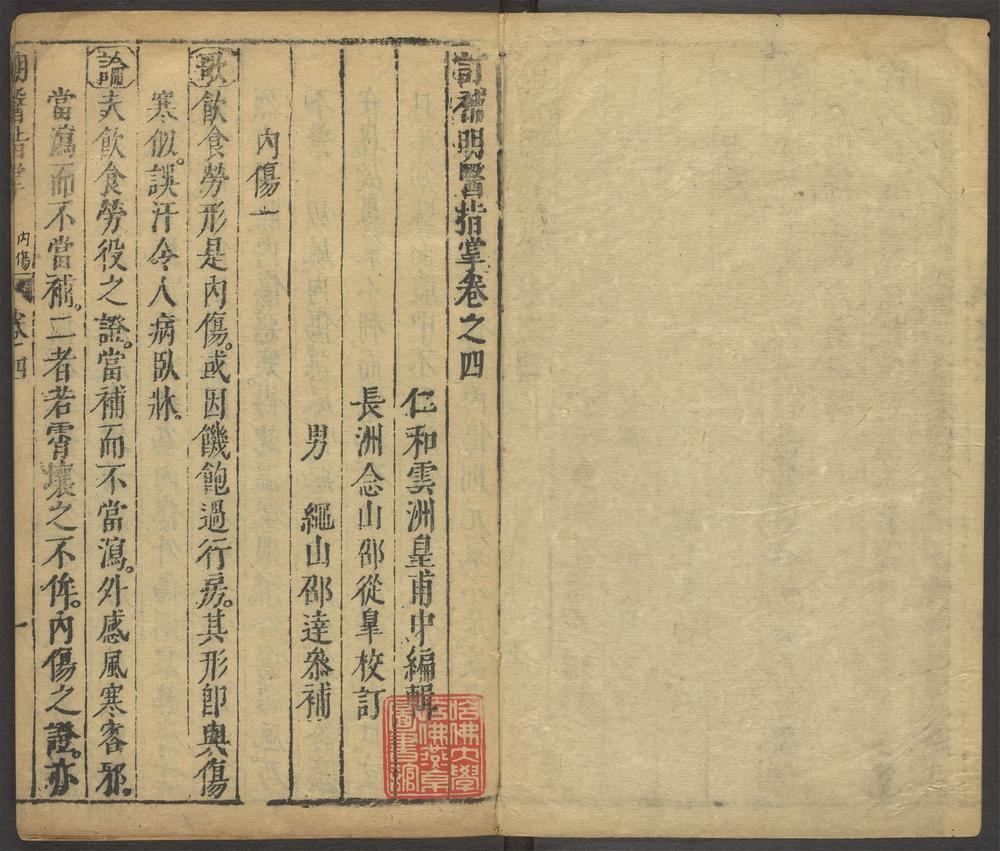 訂補明醫指掌卷之四
仁和雲洲皇甫中編輯
長洲念山邵從臯校訂
男　繩山邵達叅補
內傷一
歌飲食勞形是內傷。或因饑飽過行房。其形卽與傷
寒似。誤汗令人病臥牀。
論夫飲食勞役之證。當補而不當瀉。外感風寒客邪。
當瀉而不當補。二者若霄壤之不侔。內傷之證。亦
明醫指掌　內傷　卷四　一
哈佛大學
哈佛燕京
圖書館